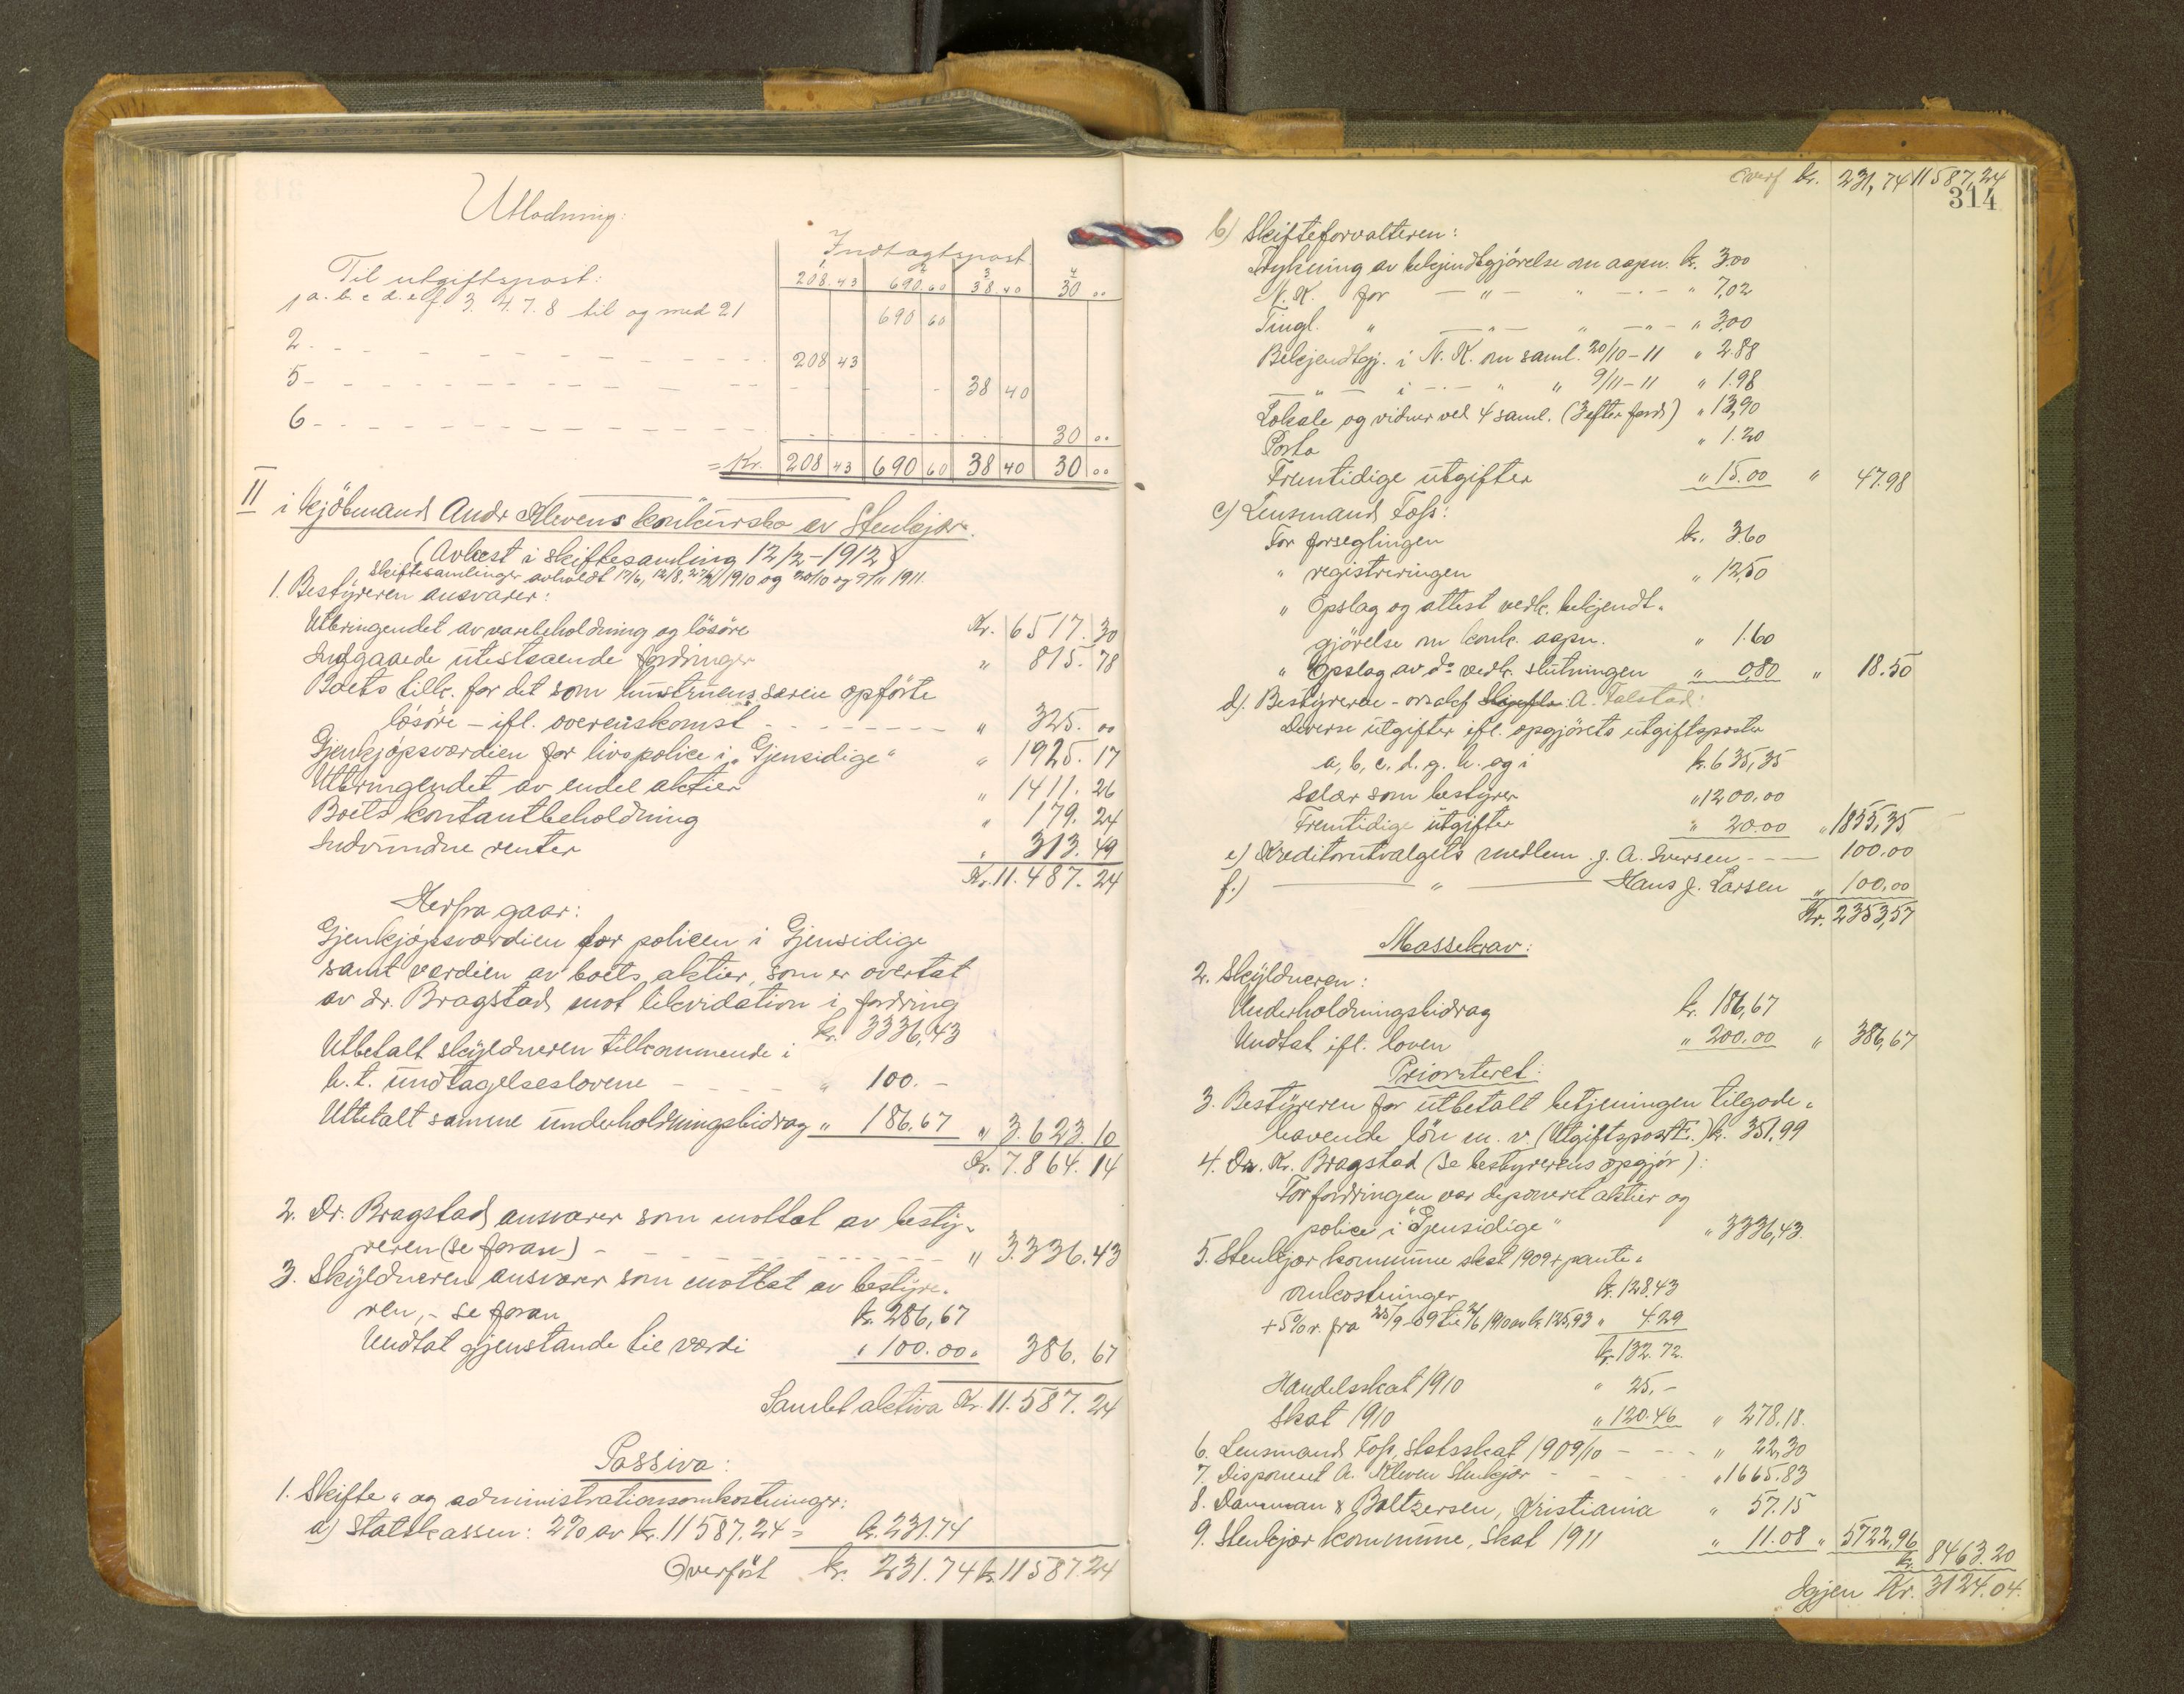 Utlodning:
Indtægtspost
Til utgiftspost:
1 2 3 4
208.43 690.60 38.40 30 00
1 a. b. c d. e f. 3. 4. 7. 8 til og med 21 690 60
2 - - - - - - - 208 43
5 - - - - - - - 38 40
6 - - - - - - - 30 00
= Kr. 208 43 690 60 38 40 30 00
II i kjöbmand Andr Klevens konkursbo av Stenkjær.
(Avlæst i skiftesamling 12/2-1912)
Skiftesamlinger avholdt 17/6, 12/8, 27/9 1910 og 20/10 og 9/11 1911.
1. Bestyreren ansvarer:
Utbringendet av varebeholdning og lösöre Kr. 6517. 30
Indgaaede utestaaende fordringer " 815. 78
Boets tilk. for det som hustruens særeie opförte
lösöre - ifl. overenskomst - - - - - " 325. 00
Gjenkjöpsværdien for livspolice i "Gjensidige" " 1925. 17
Utbringendet av endel aktier " 1411. 26
Boets kontantbeholdning " 179. 24
Indvundne renter " 313. 49
Kr. 11.487. 24
Herfra gaar:
Gjenkjöpsværdien for policen i Gjensidige
samt værdien av boets aktier, som er overtat
av dr. Bragstad mot likvidation i fordring
kr. 3336,43
Utbetalt skyldneren tilkommende i
h.t. undtagelseslovene - - - - " 100. -
Utbetalt samme underholdningsbidrag " 186,67 " 3.623.10
Kr. 7.864. 14
2. Dr. Bragstad ansvarer som mottat av besty-
reren (se foran) - - - - - - " 3.336.43
3. Skyldneren ansvarer som mottat av bestyre-
ren, - se foran kr. 286,67
Undtat gjenstande til værdi " 100.00 " 386. 67
Samlet aktiva Kr. 11.587. 24
Passiva:
1. Skifte- og administrationsomkostninger:
a) Statskassen: 2% av kr. 11587.24 = kr. 231.74
Overfört kr. 231.74 kr. 11587.24
Overf kr. 231,74 11587,24
314
b) Skifteforvalteren:
Trykning av bekjendtgjörelse om aapn. kr. 3.00
N. K. for - " - " - " - " 7,02
Tingl. " - " - " - " - " 3,00
Bekjendtgj. i N. K. om saml. 20/10-11 " 2.88
- " - i - " - " " 9/11-11 " 1.98
Lokale og vidner ved 4 saml. (3 efter ford) " 13,90
Porto " 1.20
Fremtidige utgifter " 15.00 " 47.98
c) Lensmand Foss:
For forseglingen kr. 3.60
" registreringen " 12,50
" Opslag og attest vedk. bekjendt-
gjörelse om konk. aapn. " 1.60
" Opslag av do vedk. slutningen " 0,80 " 18.50
d). Bestyreren - A. Talstad:
Diverse utgifter ifl. opgjörets utgiftsposter
a, b, c, d. g. h. og i kr. 635,35
Salær som bestyrer " 1200.00
Fremtidige utgifter " 20.00 " 1855,35
e) Kreditorutvalgets medlem J. A. Iversen - - - 100.00
f.) - " - Hans J. Larsen " 100,00
Kr. 2353,57
Massekrav:
2. Skyldneren:
Underholdningsbidrag kr. 186,67
Undtat ifl. loven " 200.00 " 386,67
Prioriteret:
3. Bestyreren for utbetalt betjeningen tilgode-
havende lön m. v. (Utgiftspost E.) kr. 351,99
4. Dr. Kr. Bragstad (se bestyrerens opgjör):
For fordringen var deponeret aktier og
police i "Gjensidige" " 3336,43.
5. Stenkjær kommune skat 1909 + pante-
omkostninger kr. 128.43
+ 5% r. fra 25/9-09 til 2/6 1910 av kr. 125,93 " 4.29
kr. 132.72.
Handelsskat 1910 " 25.-
Skat 1910 " 120.46 " 278,18.
6. Lensmand Foss, statsskat 1909/10 - - - " 22,30
7. Disponent A. Kleven Stenkjær - - - " 1665.83
8. & Baltzersen, Kristiania " 57.15
9. Stenkjær kommune, Skat 1911 " 11.08 " 5722,96
kr. 8463.20
Igjen Kr. 3124.04.